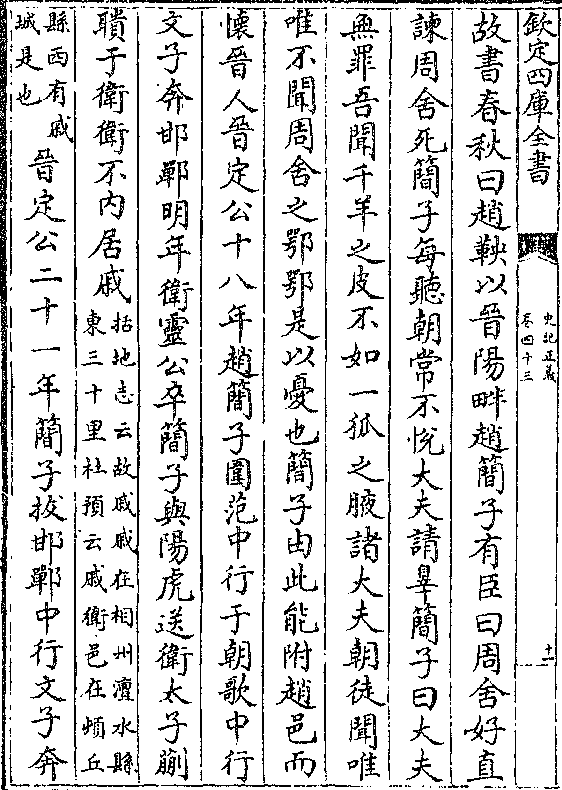 欽定四庫全書
史記正義
卷四十三
十一
故書春秋曰趙鞅以晉陽畔趙簡子有臣曰周舍好直
諫周舍死簡子每聽朝常不悅大夫請辠簡子曰大夫
無罪吾聞千羊之皮不如一狐之腋諸大夫朝徒聞唯
唯不聞周舍之鄂鄂是以憂也簡子由此能附趙邑而
懷晉人晉定公十八年趙簡子圍范中行于朝歌中行
文子奔邯鄲明年衛靈公卒簡子與陽虎送衛太子蒯
聵于衛衛不内居戚
括地志云故戚戚在相州澶水縣
東三十里杜預云戚衛邑在頓丘
縣西有戚
城是也
晉定公二十一年簡子拔邯鄲中行文子奔